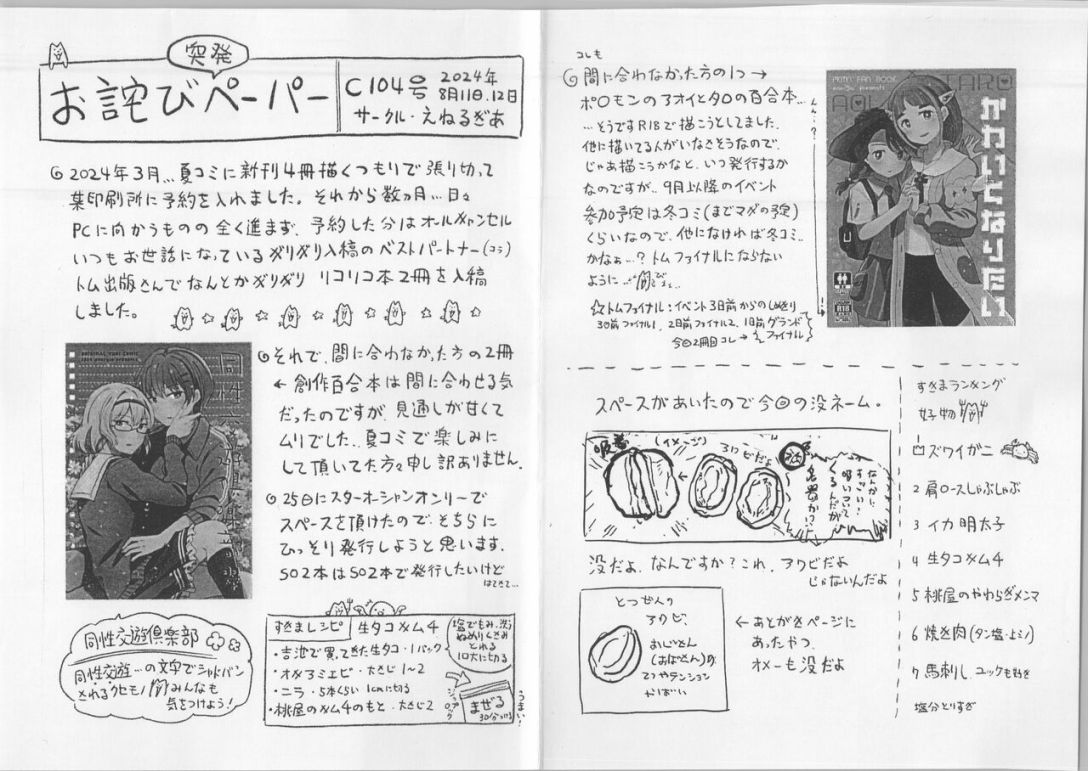 突発
お詫びペーパー
C104号 2024年
8月11日.12日
サークル・えねるぎあ
2024年3月…夏コミに新刊4冊描くつもりで張り切って
某印刷所に予約を入れました。それから数ヶ月…日々
PCに向かうものの全く進まず、予約した分はオールキャンセル
いつもお世話になっているギリギリ入稿のベストパートナー(コラ)
トム出版さんでなんとかギリギリ リコリコ本2冊を入稿
しました。
それで、間に合わなかった方の2冊
← 創作百合本は間に合わせる気
だったのですが、見通しが甘くて
ムリでした。夏コミで楽しみに
して頂いてた方々申し訳ありません。
25日にスターオーシャンオンリーで
スペースを頂けたので、そちらに
ひっそり発行しようと思います。
SO2本はSO2本で発行したいけど
はてさて…
同性交遊倶楽部
同性交遊…の文字でシャドバン
されるクセモノ みんなも
気をつけよう!
すきまレシピ 生タコキムチ
・吉池で買ってきた生タコ・1パック
・オキアミエビ・大さじ1〜2
・ニラ・5本くらい 1cmに切る
・桃屋のキムチのもと・大さじ2
塩でもみ、洗う
ぬめりくさみ
とれる
1口大に切る
ジップロック
まぜる
うまい!
コレも
間に合わなかった方の1つ →
ポ○モンのアオイとタロの百合本…
…そうですR18で描こうとしてました。
他に描いてる人がいなさそうなので、
じゃあ描こうかなと。いつ発行するか
なのですが…9月以降のイベント
参加予定は冬コミ(までマダの予定)
くらいなので、他になければ冬コミ…
かなぁ…?トムファイナルにならない
ように…
☆トムファイナル:イベント3日前からのしめきり
3日前ファイナル1、2日前ファイナル2、1日前グランド
ファイナル
今回2冊目コレ→
POKEMON FAN BOOK
AOI
TARO
かわいくなりたい
R18
スペースがあいたので今回の没ネーム。
(イメージ)
アワビだよ
なんかに
すごい!
吸いついて
くるんだが
名器か!?
没だよ、なんですか?これ、アワビだよ
じゃないんだよ
とつぜんの
アワビ。
← あとがきページに
あったやつ。
オメーも没だよ
すきまランキング
好物
1 ズワイガニ
2 肩ロースしゃぶしゃぶ
3 イカ明太子
4 生タコキムチ
5 桃屋のやわらぎメンマ
6 焼き肉(タン塩・上ミノ)
7 馬刺し ユッケも好き
塩分とりすぎ